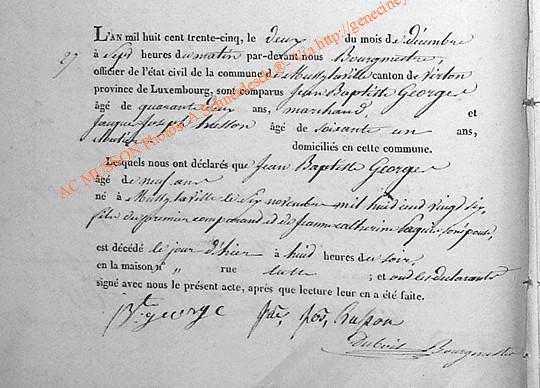 27
L'AN mil huit cent trente-cinq, le deux du mois de décembre
à sept heures du matin par-devant nous Bourgmestre,
officier de l'état civil de la commune de Mussy la ville canton de Virton
province de Luxembourg, sont comparus jean Baptiste George
âgé de quarante deux ans, marchand et
jacque joseph husson âgé de soisante un ans,
domiciliés en cette commune.
Lesquels nous ont déclarés que jean Baptiste George
âgé de neuf ans
né à Mussy la ville le six novembre mil huit cent vingt six,
fils du premier comparant et de jeanne catherine son épouse,
est décédé le jour d'hier à huit heures du soir,
en la maison n° „ rue ; et ont les déclarants
signé avec nous le présent acte, après que lecture leur en a été faite.
george husson
Dubois Bourgmestre
AC MUSSON Photos: A. Schneidesch ®- Via http://geneciney